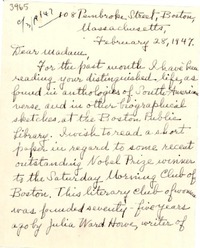 3965
108 Pembroke Street, Boston,
Massachusetts,
February 28, 1947.
Dear Madam:
For the past month I have been
reading your distinguished life, as
found in anthologies of South American
verse and in other biographical
sketches, at the Boston Public
Library. I wish to read a short
paper in regard to some recent
outstanding Nobel Prize winner
to the Saturday Morning Club of
Boston. This literary club of women
was founded seventy-five years
ago by Julia Ward Howe, writer of